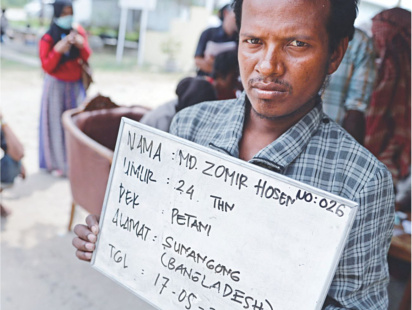 NO:026
NAMA : MD. ZOMIR HOSEN
UMUR : 24 THN
PEK : PETANI
ALAMAT : SUMANGONG
(BANGLADESH)
TGL : 17-05-